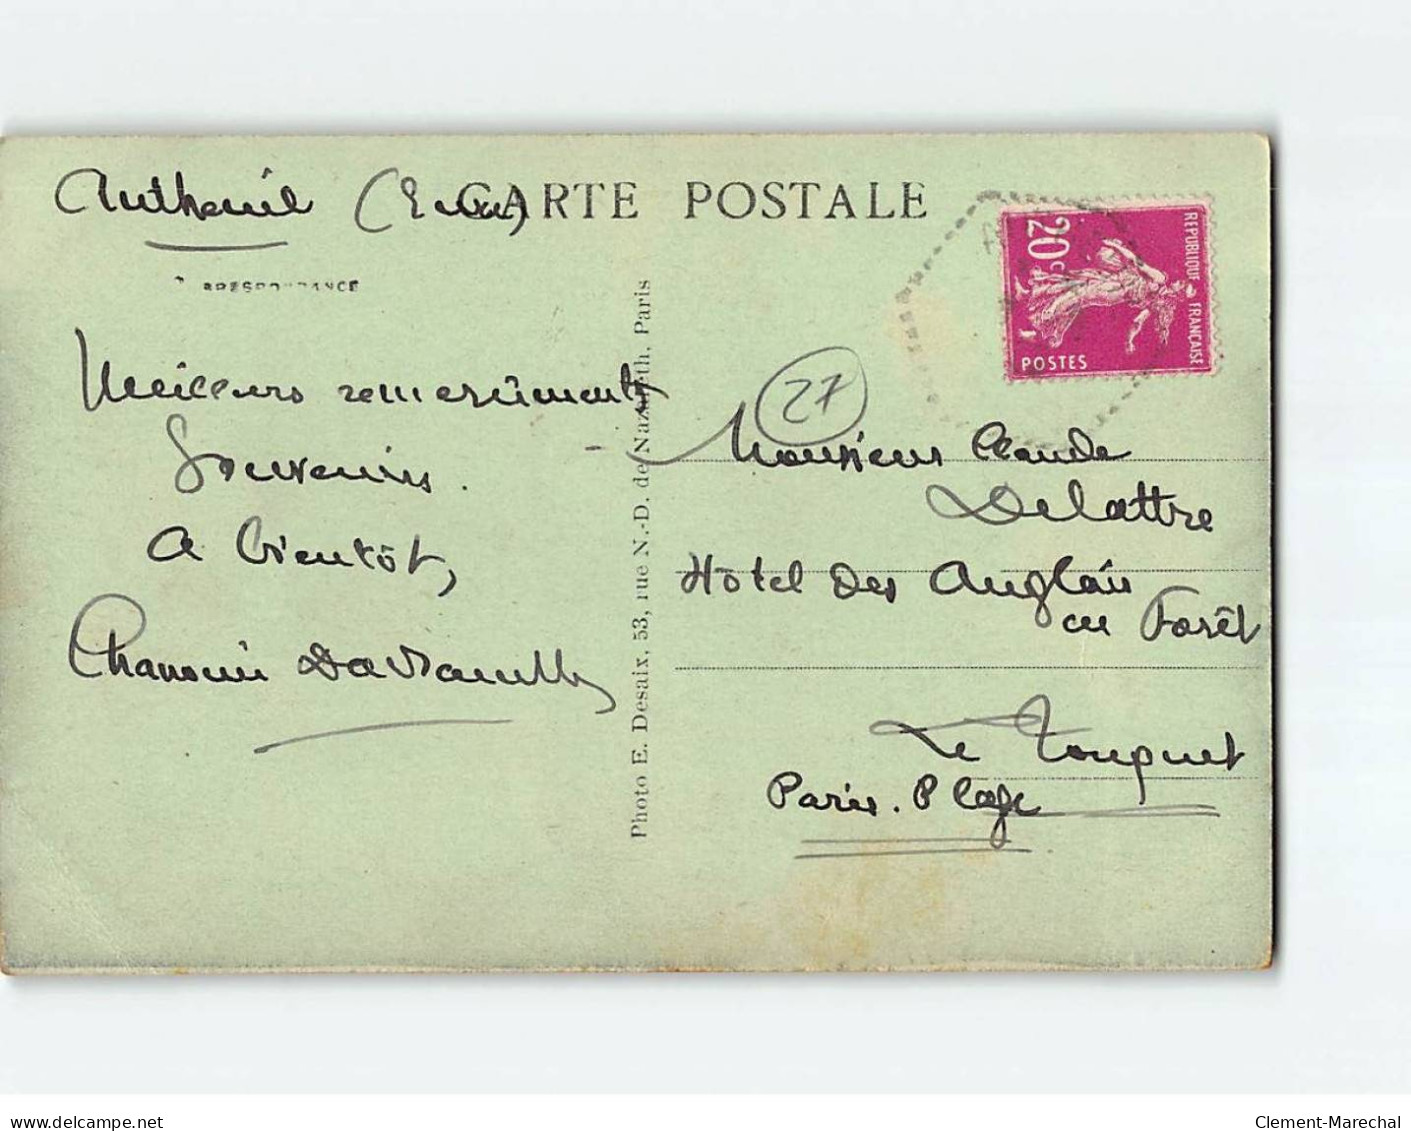 Autheuil (Eure)
CARTE POSTALE
Meilleurs remerciements
Souvenirs.
A bientôt,
Chanoine
Photo E. Desaix, 53, rue N.-D. de Nazareth, Paris
REPUBLIQUE FRANÇAISE
20 c
POSTES
27
Monsieur Claude
Delattre
Hôtel des Anglais
en Forêt
Le Touquet
Paris. Plage
www.delcampe.net
Clement-Marechal